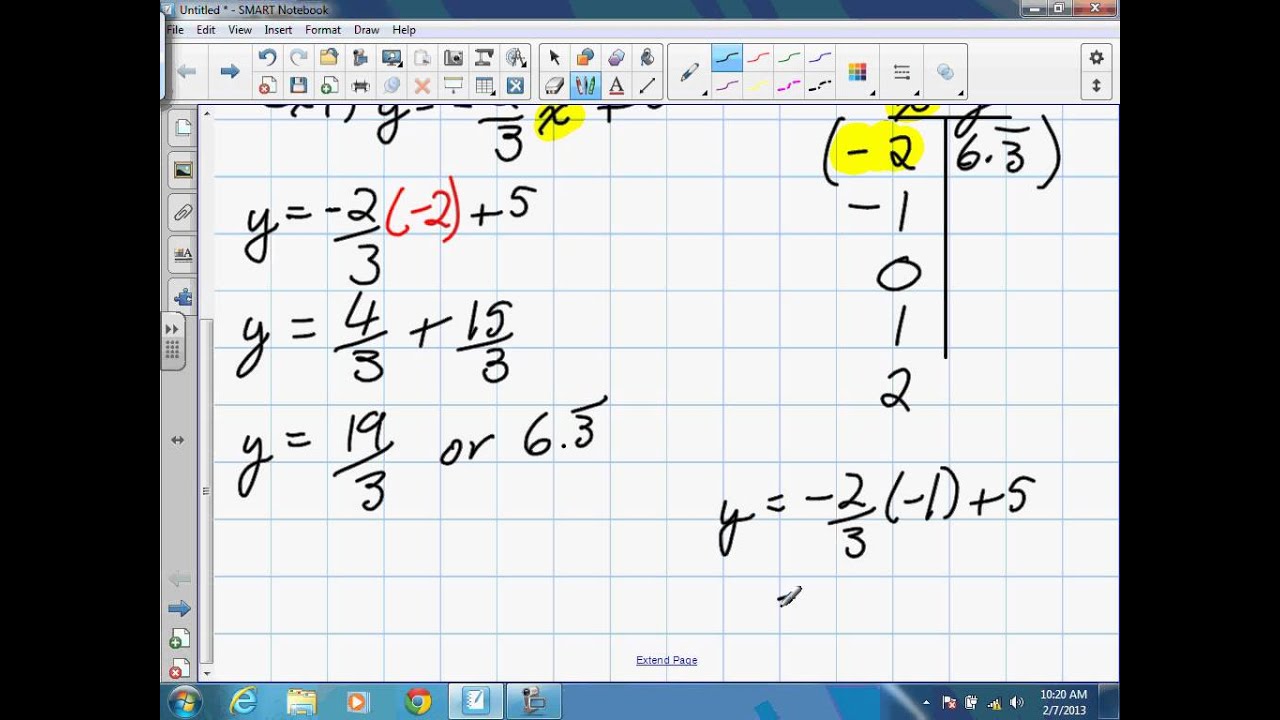 Untitled * - SMART Notebook
File Edit View Insert Format Draw Help
y = -2/3 (-2) + 5
y = 4/3 + 15/3
y = 19/3 or 6.3̅
(-2 | 6.3̅)
-1
0
1
2
y = -2/3 (-1) + 5
=
Extend Page
10:20 AM
2/7/2013